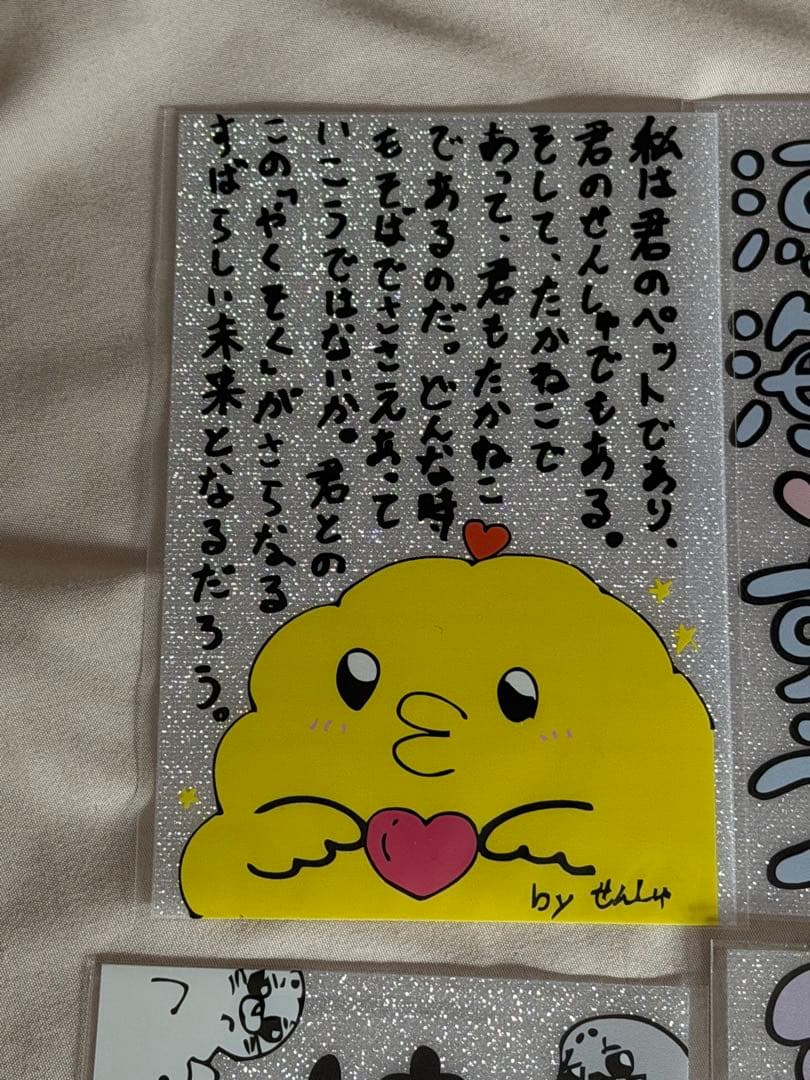 私は君のペットであり、
君のせんしゅでもある。
そして、たかねこで
あって、君もたかねこ
であるのだ。どんな時
もそばでささえあって
いこうではないか。君との
この「やくそく」がさらなる
すばらしい未来となるだろう。
by せんしゅ